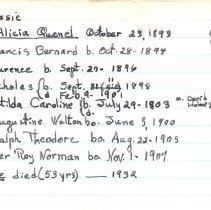 ssie
Alicia Quenel October 25, 1893
ancis Bernard b. Oct-28-1894
urence b. Sept-27-1896
holas {b. Sept. 1898
d. Feb. 9-1901
tilda Caroline {b. July 29-1803
d.
ugustine Walton bo. June 5, 1900
alph Theodore bo. Aug. 22-1905
er Roy Norman bo. Nov. 1-1907
e died (53 yrs) — 1932